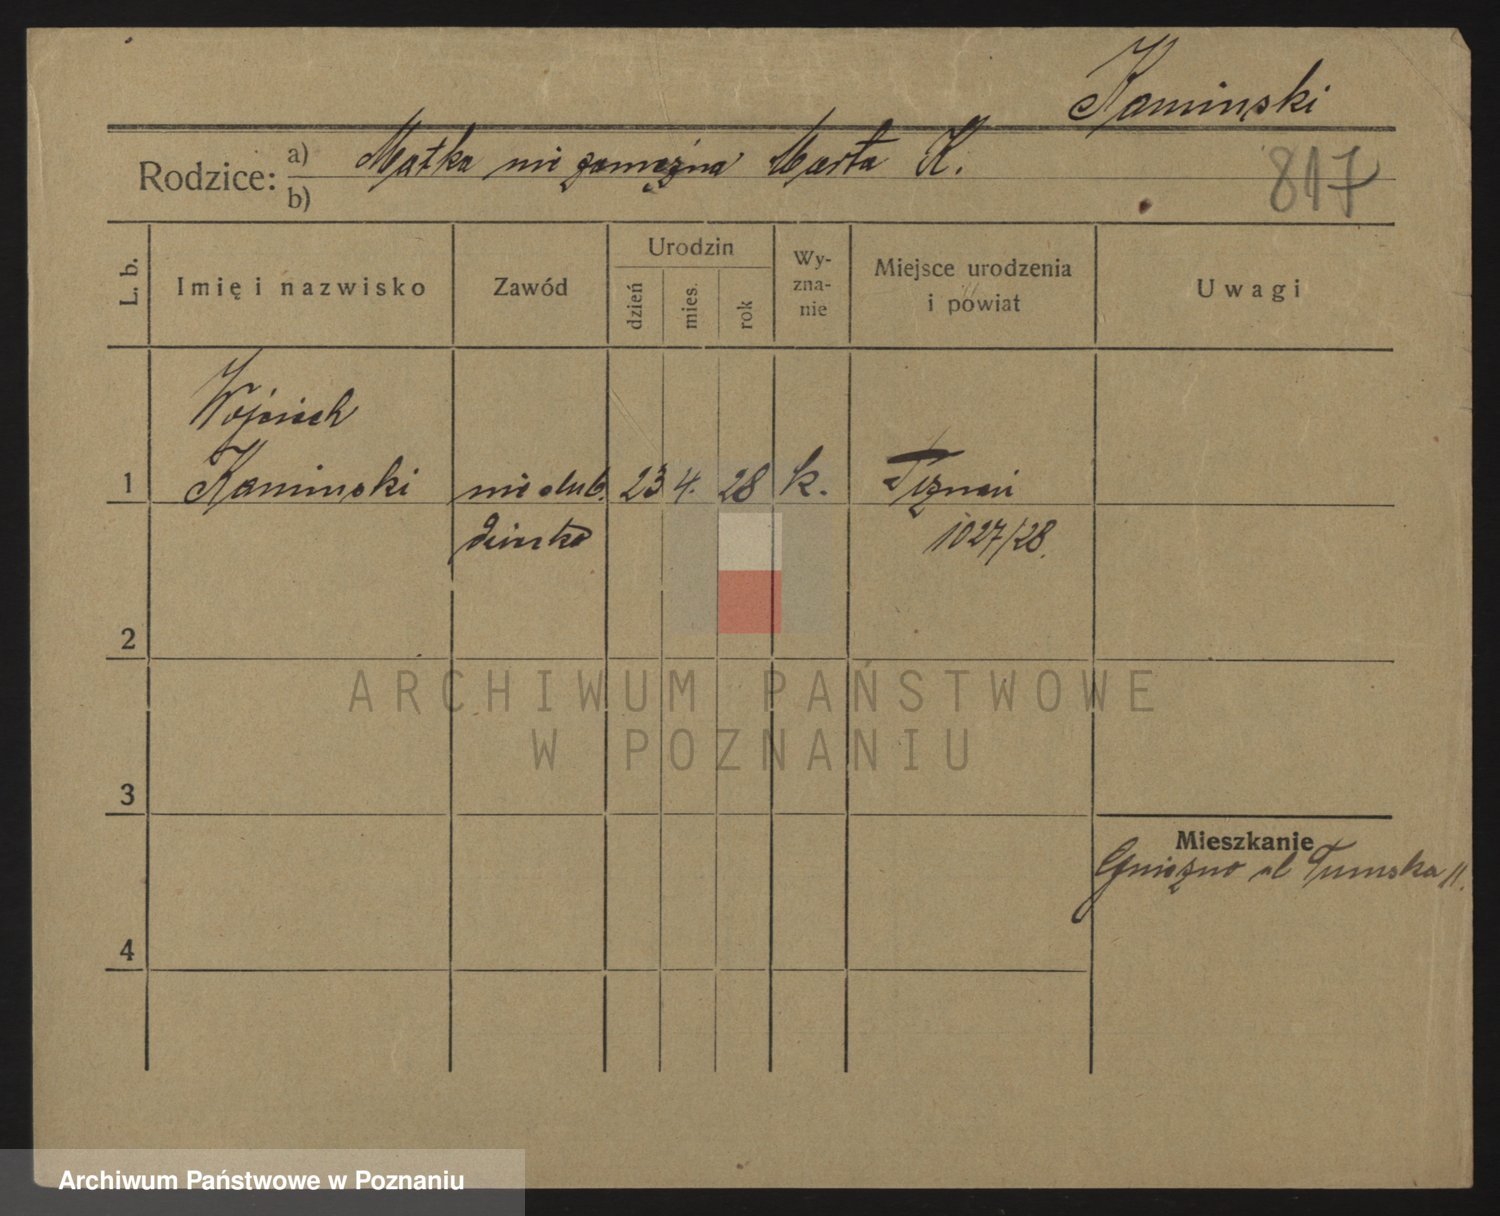 Kaminski
Rodzice: a) Matka nie zamężna Marta K.
b)
817
L. b.
Imię i nazwisko
Zawód
Urodzin
dzień
mies.
rok
Wy-
zna-
nie
Miejsce urodzenia
i powiat
Uwagi
Wojciech
1 Kaminski nieślub. 23 4. 28 k. Poznań
dziecko 1027/28.
2
3
4
Mieszkanie
Gniezno ul Tumska 11.
ARCHIWUM PAŃSTWOWE
W POZNANIU
Archiwum Państwowe w Poznaniu